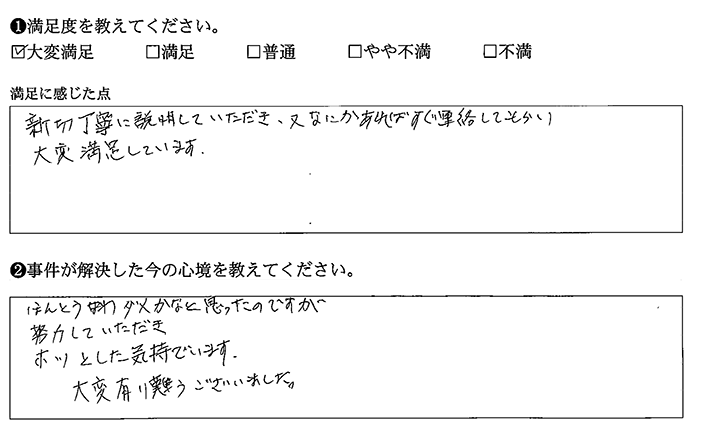 ❶満足度を教えてください。
☑大変満足 □満足 □普通 □やや不満 □不満
満足に感じた点
新切丁寧に説明していただき、又なにかあればすぐ連絡してもらい
大変満足しています.
❷事件が解決した今の心境を教えてください。
ほんとう ダメかなと思ったのですが
努力していただき
ホッとした気持でいます.
大変有り難うございました。